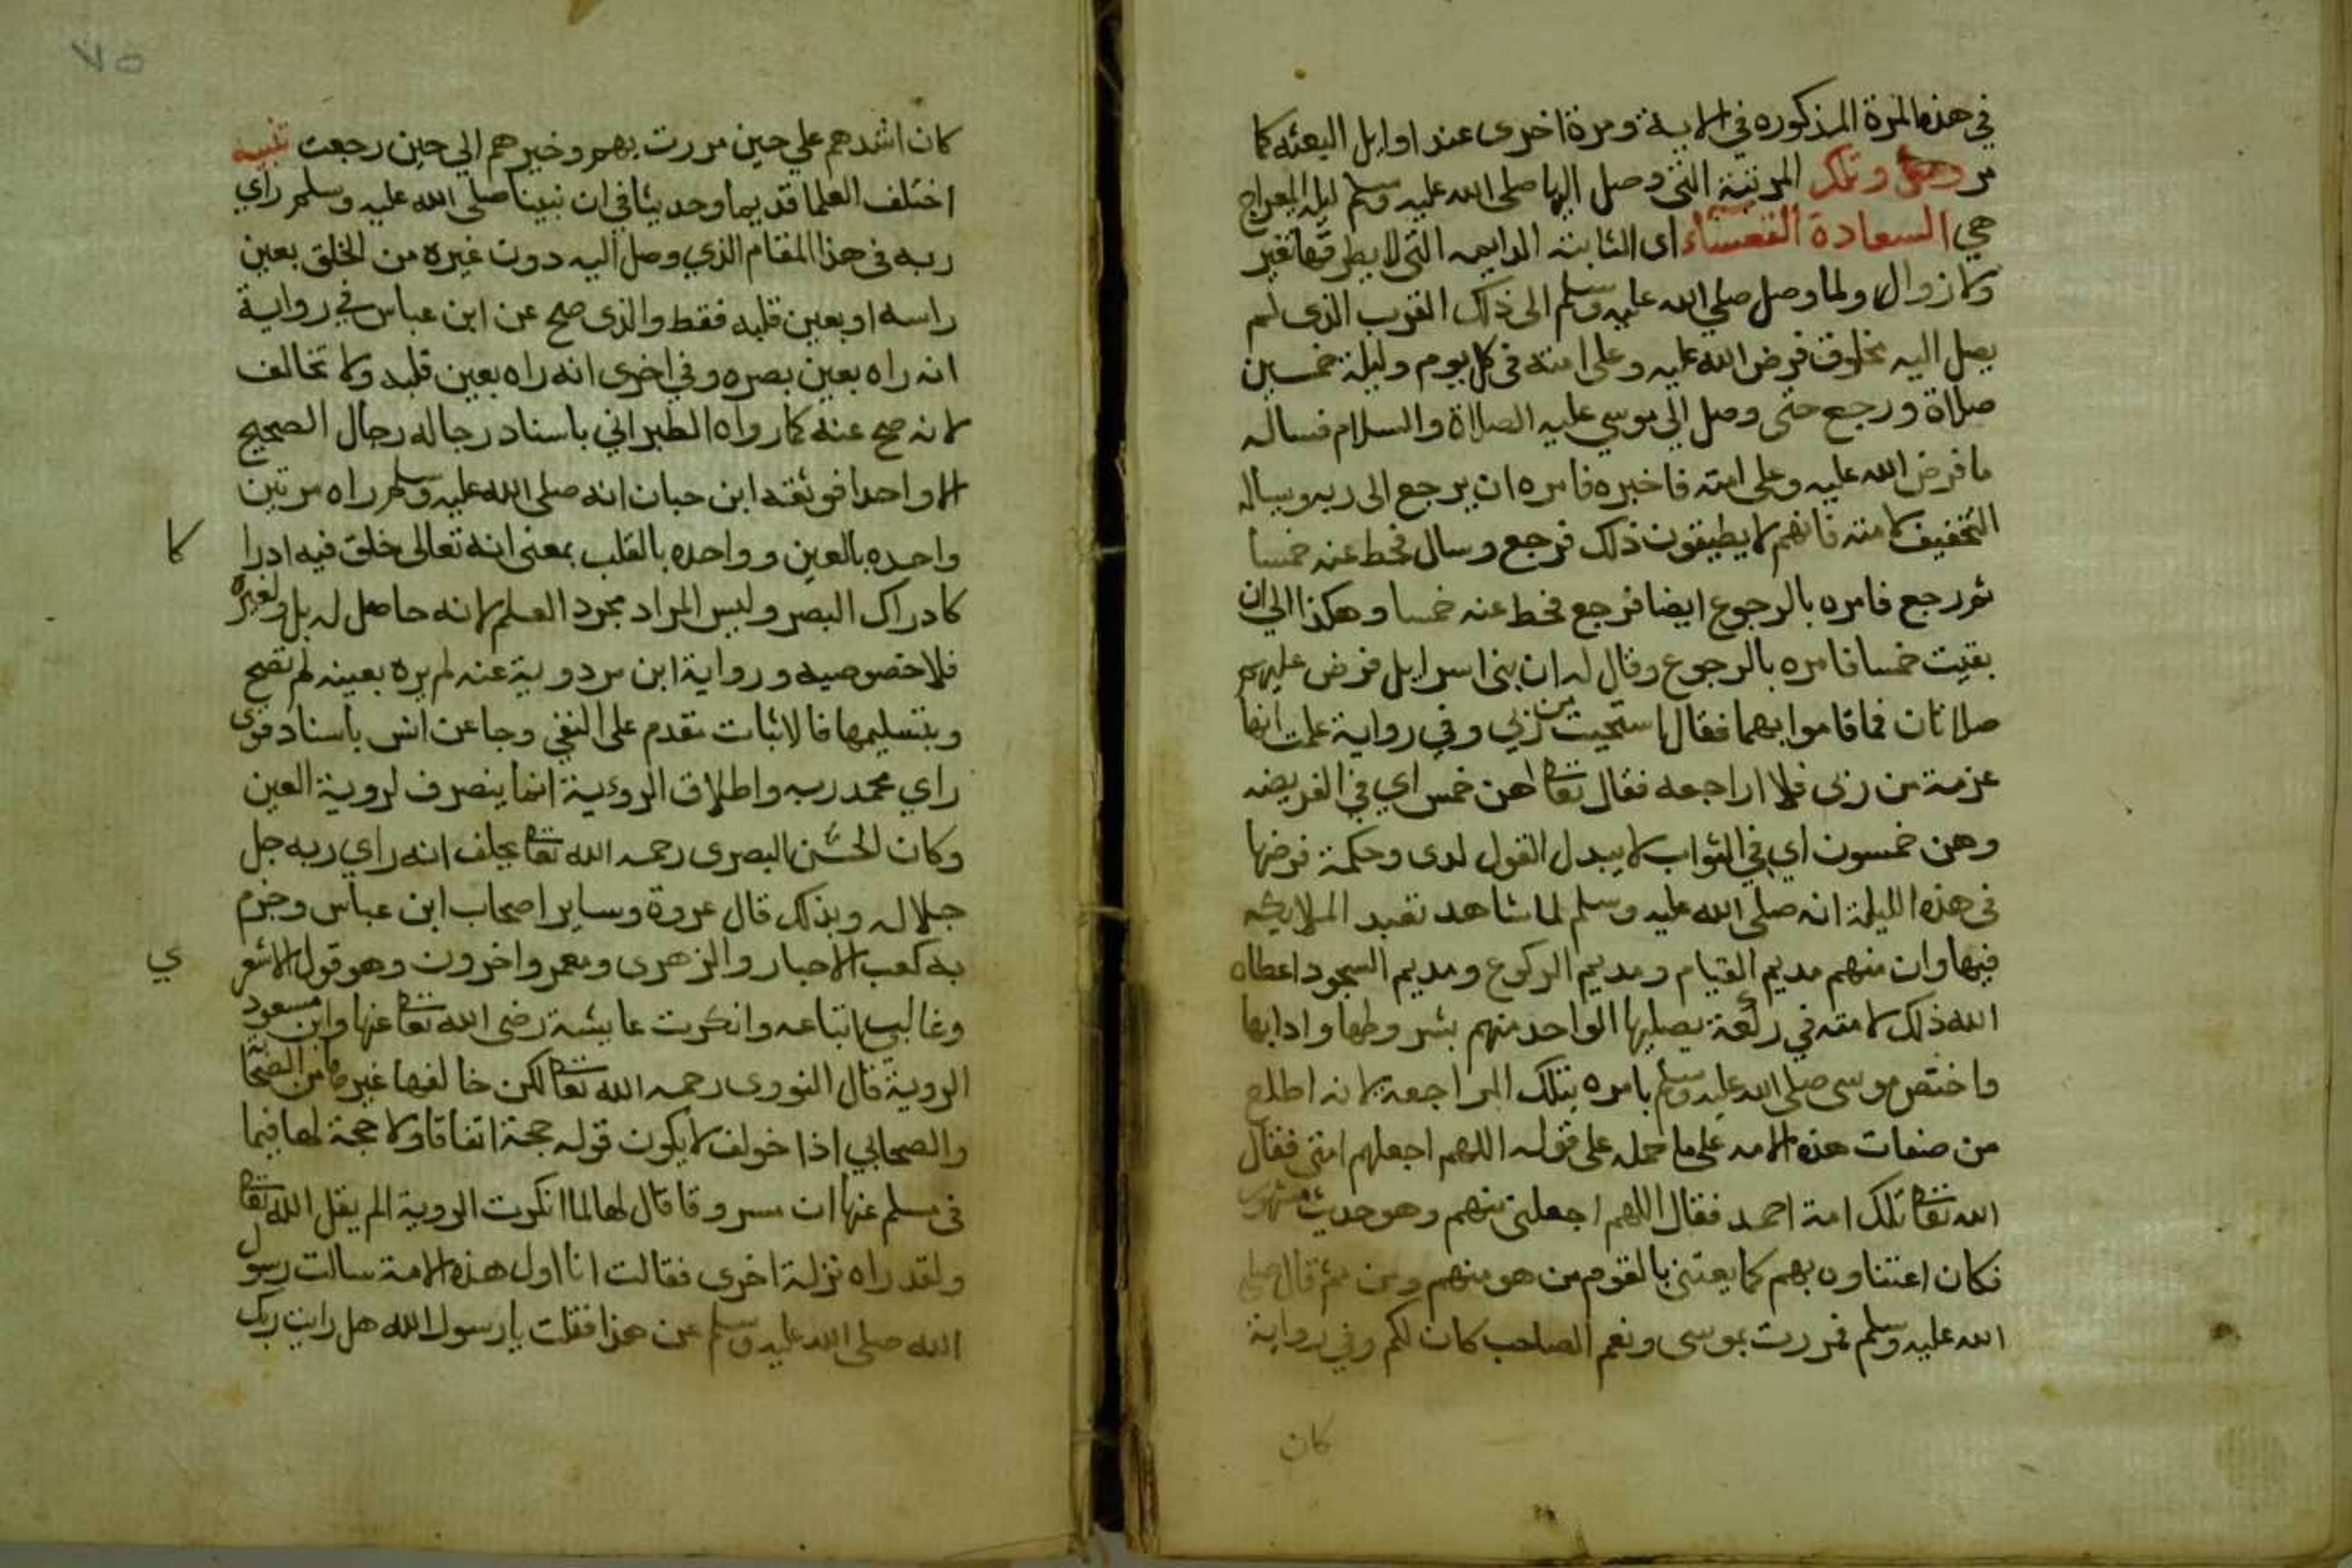 في هذه المرة المذكوره في الاية ومرة اخرى عند اوايل البعثه كما
مر وتلك المرتبة التي وصل اليها صلى الله عليه وسلم ليلة المعراج
هي السعادة القعساء اي الثابتة الدايمه التي لا يطرقها تغير
ولا زوال ولما وصل صلي الله عليه وسلم الى ذلك القرب الذى لم
يصل اليه مخلوق فرض الله عليه وعلى امته في كل يوم وليلة خمسين
صلاة ورجع حتى وصل الي موسي عليه الصلاة والسلام فساله
ما فرض الله عليه وعلى امته فاخبره فامره ان يرجع الى ربه ويساله
التخفيف لامته فانهم لا يطيقون ذلك فرجع وسال فحط عنه خمسا
ثم رجع فامره بالرجوع ايضا فرجع فحط عنه خمسا وهكذا الي ان
بقيت خمسا فامره بالرجوع وقال له ان بني اسرايل فرض عليهم
صلاتان فما قاموا بهما فقال استحيت من ربي وفي رواية علمت انها
عزمة من ربى فلا اراجعه فقال تعا هن خمس اي في الفريضه
وهن خمسون اي في الثواب لا يبدل القول لدى وحكمة فرضها
في هذه الليلة انه صلى الله عليه وسلم لما شاهد تعبد الملايكه
فيها وان منهم مديم القيام ومديم الركوع ومديم السجود اعطاه
الله ذلك لامته في ركعة يصليها الواحد منهم بشروطها وادابها
واختص موسى صلى الله عليه وسلم بامره بتلك المراجعه لانه اطلع
من صفات هذه الامه على ما حمله على قوله اللهم اجعلهم امتى فقال
الله تعا تلك امة احمد فقال اللهم اجعلنى منهم وهو حديث مشهور
فكان اعتناوه بهم كما يعتني بالقوم من هو منهم ومن ثم قال صلى
الله عليه وسلم فمررت بموسى ونعم الصاحب كان لكم وفي رواية
كان
٧٥
كان اشدهم علي حين مررت بهم وخيرهم الي حين رجعت تنبيه
اختلف العلما قديما وحديثا في ان نبينا صلى الله عليه وسلم راي
ربه في هذا المقام الذي وصل اليه دون غيره من الخلق بعين
راسه او بعين قلبه فقط والذى صح عن ابن عباس في رواية
انه راه بعين بصره وفي اخرى انه راه بعين قلبه ولا تخالف
لانه صح عنه كما رواه الطبراني باسناد رجاله رجال الصحيح
الا واحدا فوثقه ابن حبان انه صلى الله عليه وسلم راه مرتين
واحده بالعين وواحده بالقلب بمعنى انه تعالى خلق فيه ادرا
كا
كادراك البصر وليس المراد مجرد العلم لانه حاصل له بل ولغيره
فلا خصوصيه ورواية ابن مردوية عنه لم يره بعينه لم تصح
وبتسليمها فالاثبات مقدم على النفي وجا عن انس باسناد قوى
راي محمد ربه واطلاق الروءية انما ينصرف لروية العين
وكان الحسن البصرى رحمه الله تعا يحلف انه راي ربه جل
جلاله وبذلك قال عروة وساير اصحاب ابن عباس وجزم
به كعب الاحبار والزهرى ومعمر واخرون وهو قول الاشعر
ي
وغالب اتباعه وانكرت عايشة رضى الله تعا عنها وابن مسعود
الروية قال النووى رحمه الله تعا لكن خالفها غيرها من الصحا
والصحابي اذا خولف لا يكون قوله حجة اتفاقا ولا حجة لها فيما
في مسلم عنها ان مسروقا قال لها لما انكرت الروية الم يقل الله تعا
ولقد راه نزلة اخرى فقالت انا اول هذه الامة سالت رسول
الله صلى الله عليه وسلم عن هذا فقلت يا رسول الله هل رايت ربك